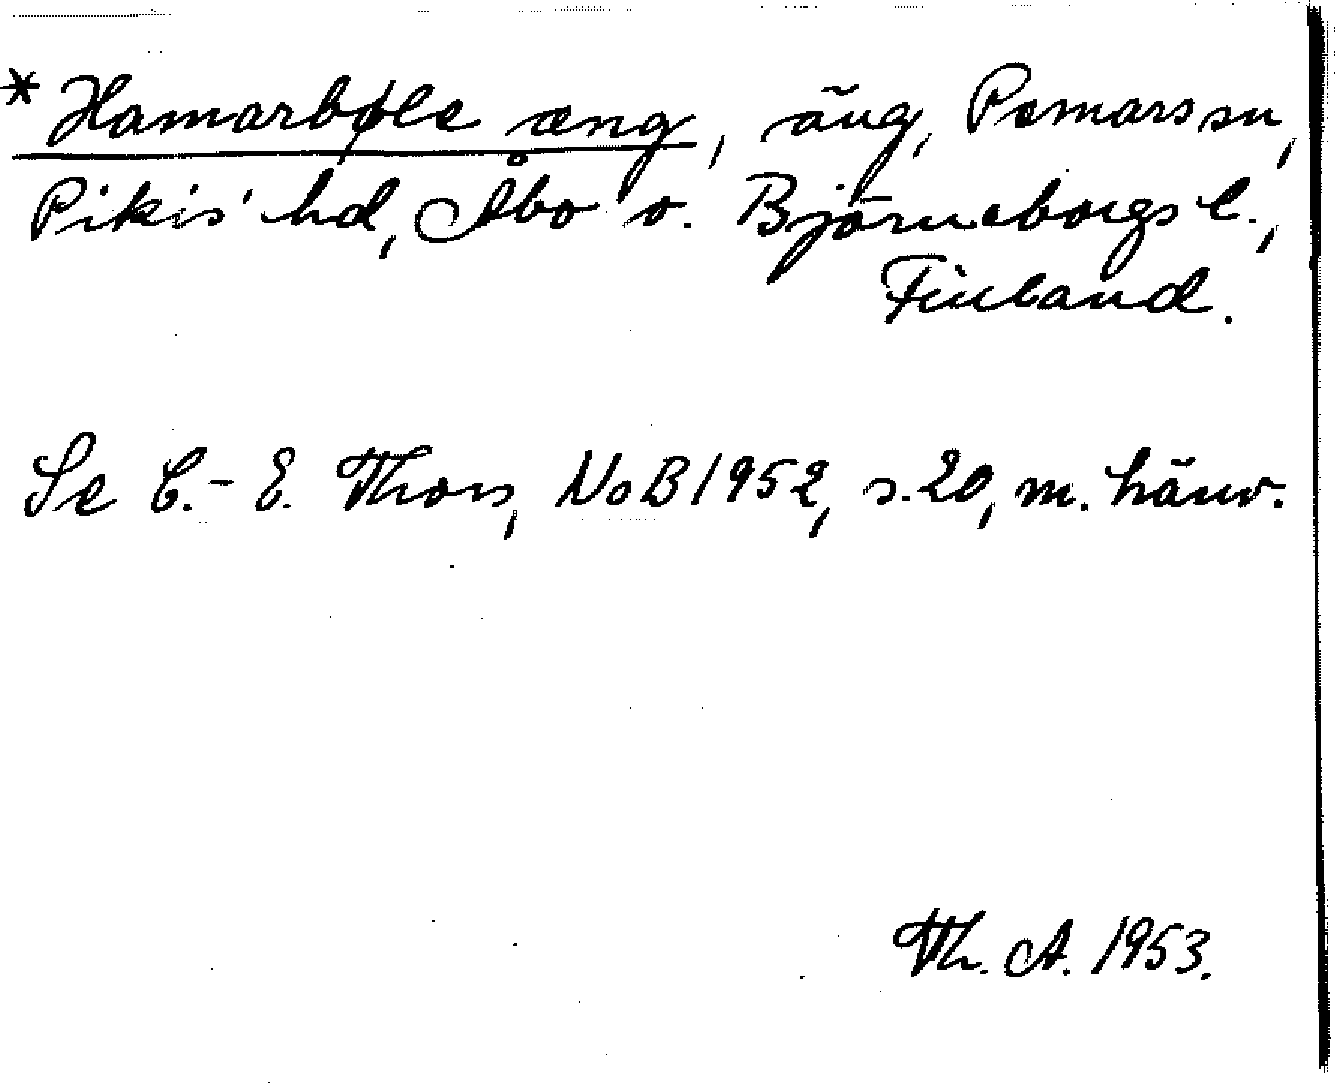 * Hamarbøle æng, äng, Pemars sn,
Pikis' hd, Åbo o. Björneborgs l.,
Finland.
Se C.-E. Thors, NoB 1952, s. 20, m. hänv.
Th. A. 1953.